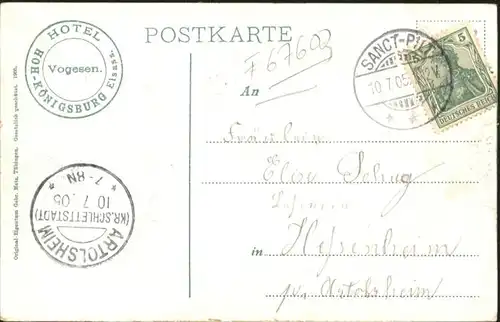 POSTKARTE
HOTEL
Vogesen.
HOH-KÖNIGSBURG Elsass.
F 67602
SANCT-PILT
10.7.05
5
DEUTSCHES REICH
An
Fräulein
Elise Schug
Lehrerin
in Hessenheim
p/v. Artolsheim
ARTOLSHEIM
(KR. SCHLETTSTADT)
10 7 05
* 7-8N *
Original-Eigentum Gebr. Metz, Tübingen. Gesetzlich geschützt. 1905.